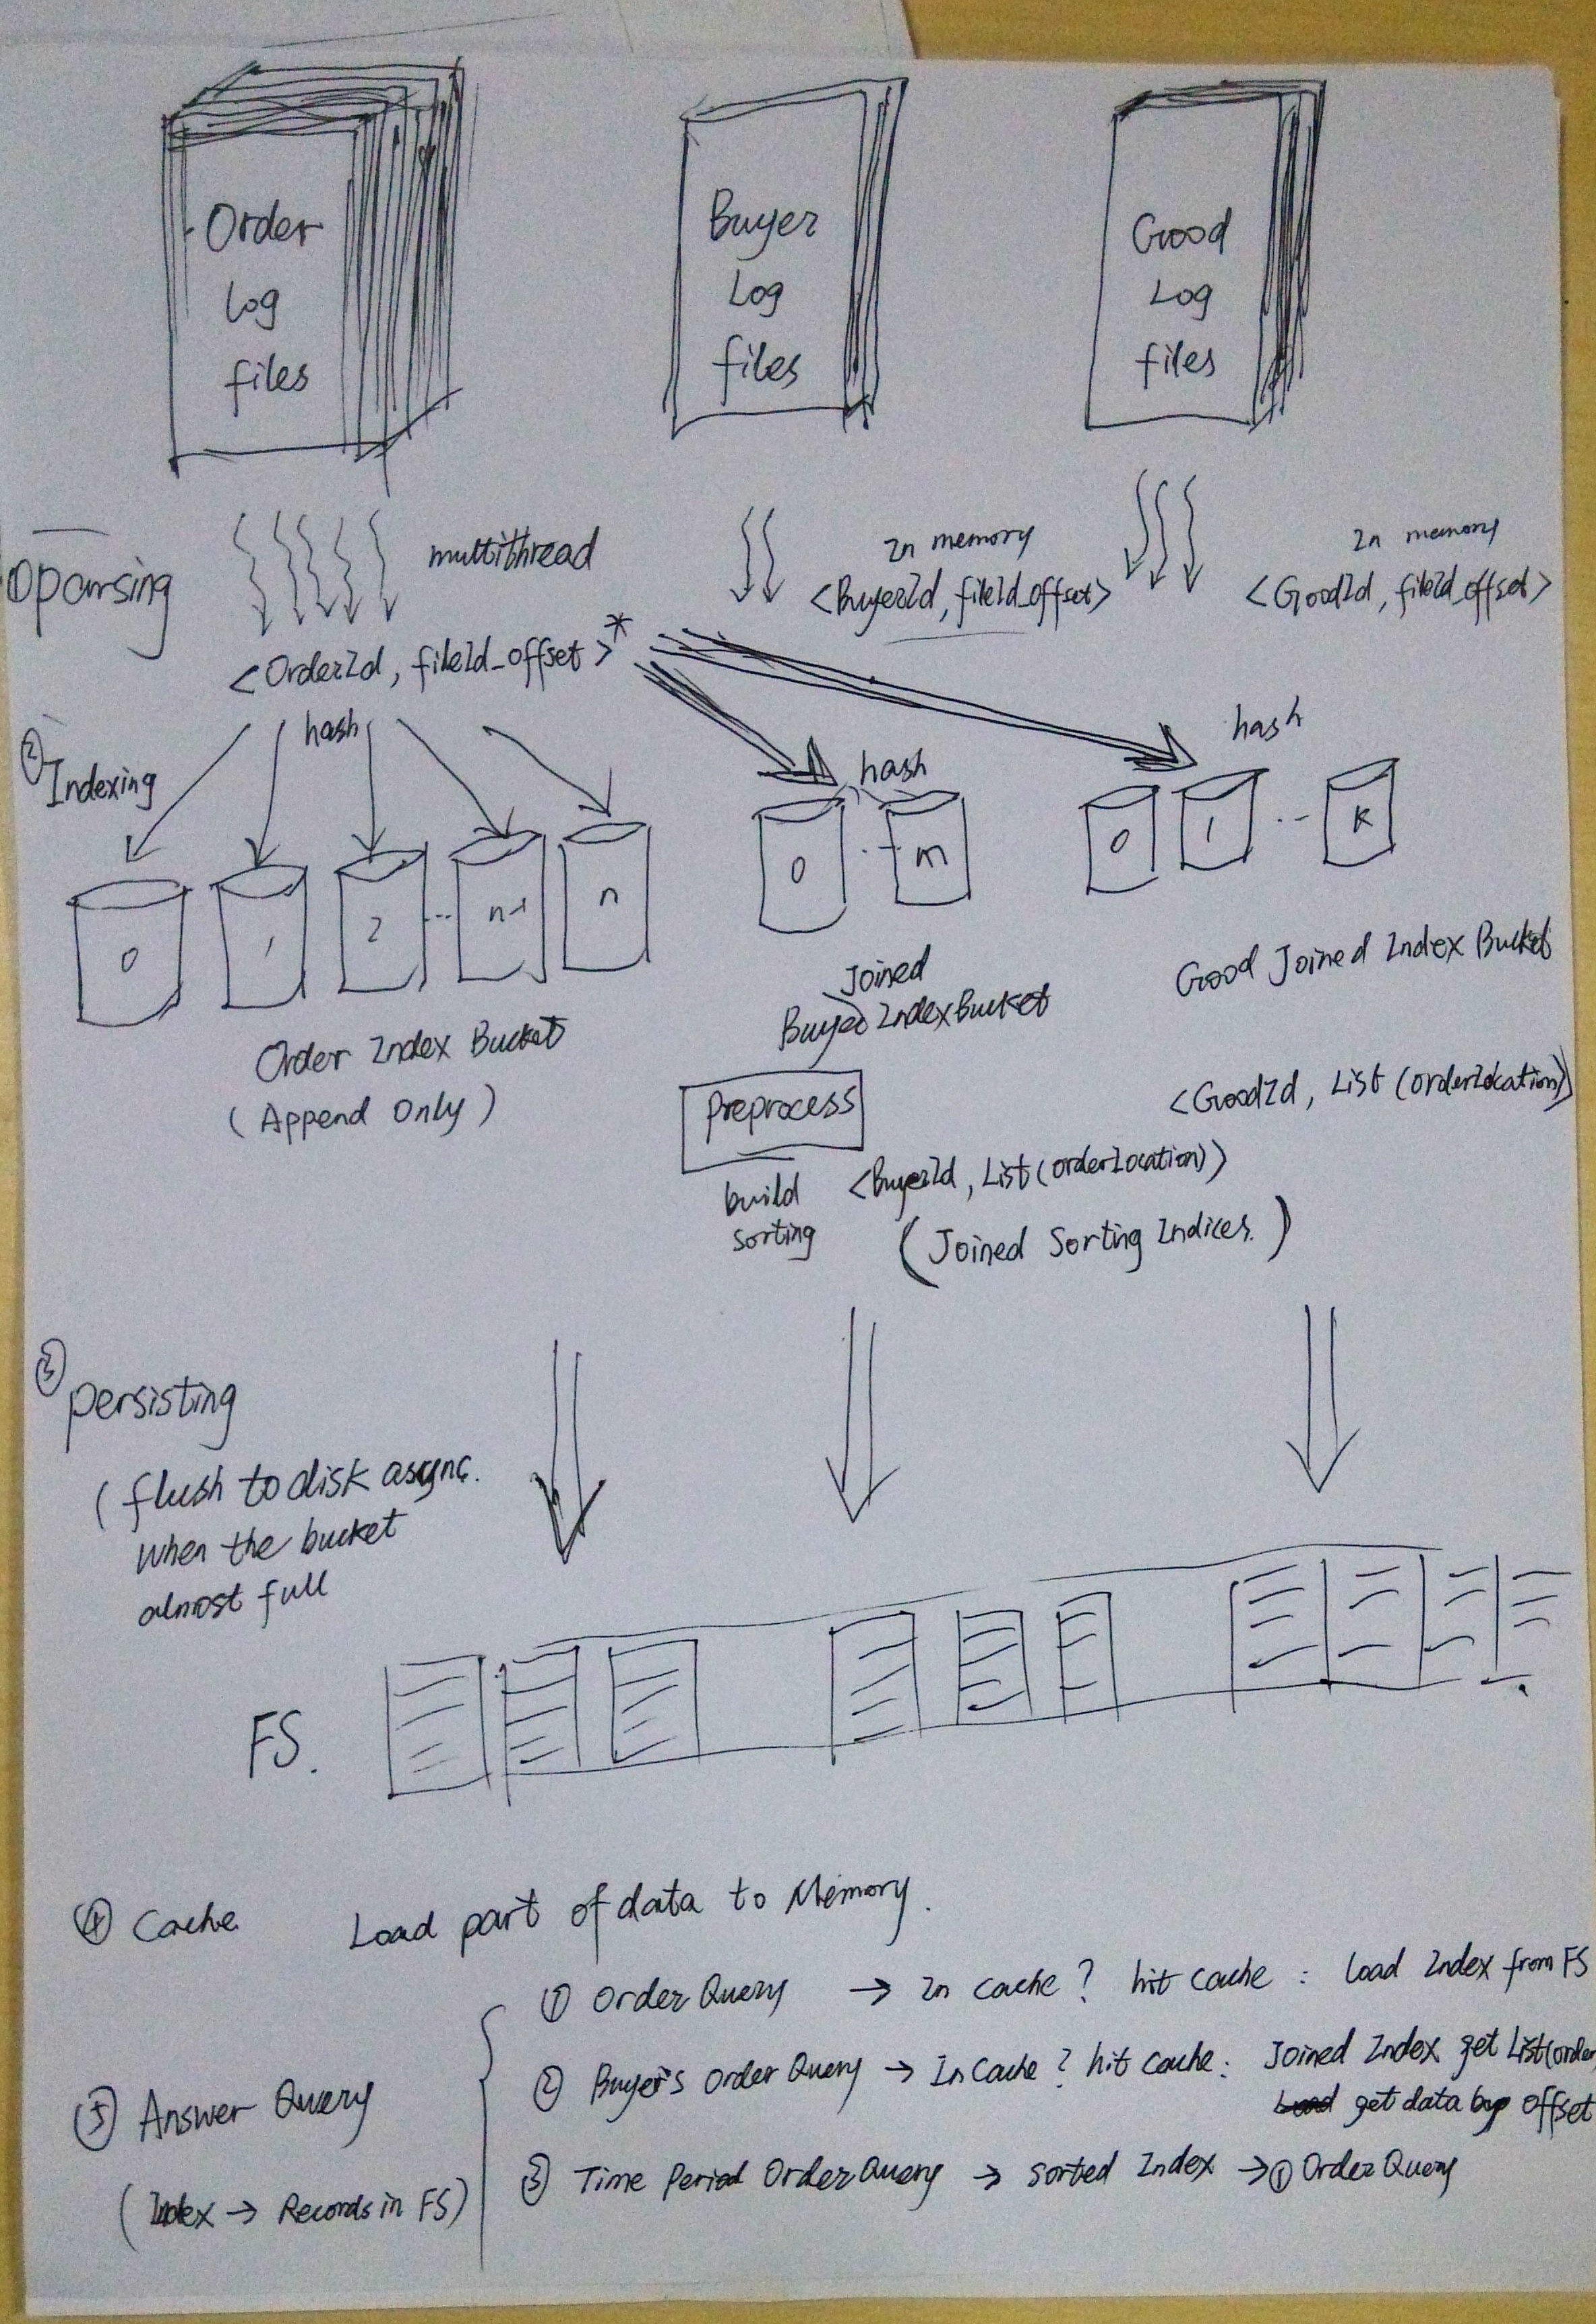 Order
Log
files
Buyer
Log
files
Good
Log
files
① parsing
multithread
<OrderId, fileId_offset>*
In memory
<BuyerId, fileId_offset>
In memory
<GoodId, fileId_offset>
② Indexing
hash
0
1
2
...
n-1
n
Order Index Bucket
(Append Only)
hash
0
...
m
Joined
Buyer Index Bucket
hash
0
1
...
k
Good Joined Index Bucket
<GoodId, List(orderLocation)>
Preprocess
build
sorting
<BuyerId, List(orderLocation)>
(Joined Sorting Indices.)
③ persisting
(flush to disk async.
when the bucket
almost full
FS.
④ Cache
Load part of data to Memory.
⑤ Answer Query
(Index → Records in FS)
① Order Query → In cache? hit cache : load Index from FS
② Buyer's Order Query → In Cache? hit cache : Joined Index get List(order
Load get data by offset
③ Time Period Order Query → sorted Index → ① Order Query